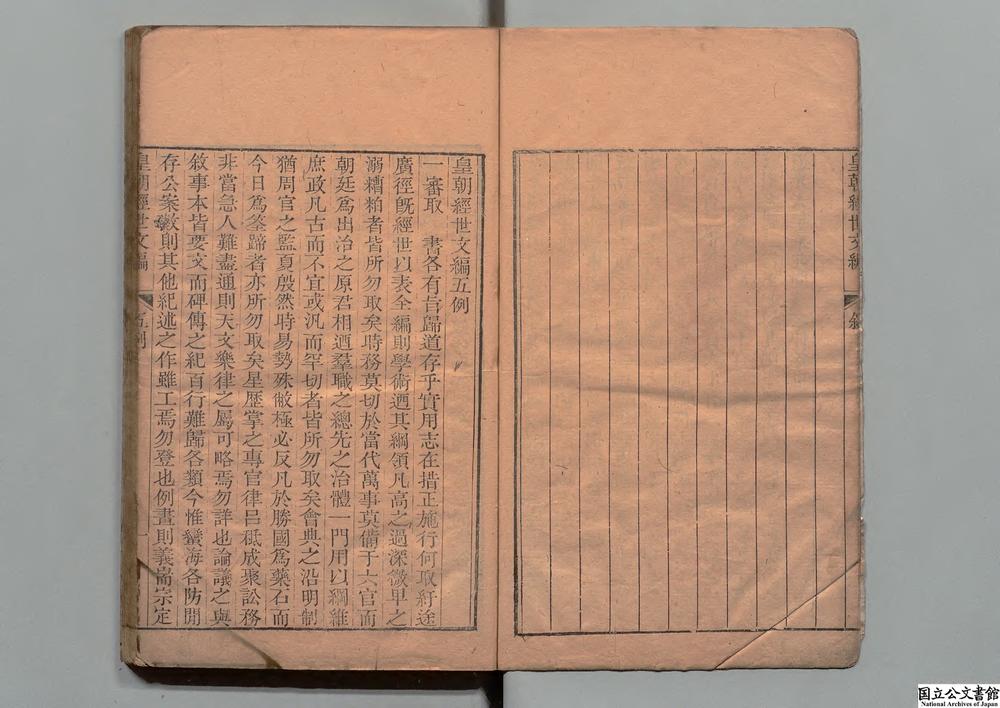 皇朝經世文編
敘
皇朝經世文編五例
一審取　書各有旨歸道存乎實用志在措正施行何取紆途
廣徑旣經世以表全編則學術迺其綱領凡高之過深微卑之
溺糟粕者皆所勿取矣時務莫切於當代萬事莫備于六官而
朝廷爲出治之原君相迺羣職之總先之治體一門用以綱維
庶政凡古而不宜或汎而罕切者皆所勿取矣會典之沿明制
猶周官之監夏殷然時易勢殊敝極必反凡於勝國爲藥石而
今日爲筌蹄者亦所勿取矣星歷掌之專官律呂秪成聚訟務
非當急人難盡通則天文樂律之屬可略焉勿詳也論議之與
敘事本皆要文而碑傳之紀百行難歸各類今惟蠻海各防開
存公案數則其他紀述之作雖工焉勿登也例畫則義崙宗定
皇朝經世文編
五例
一
国立公文書館
National Archives of Japan